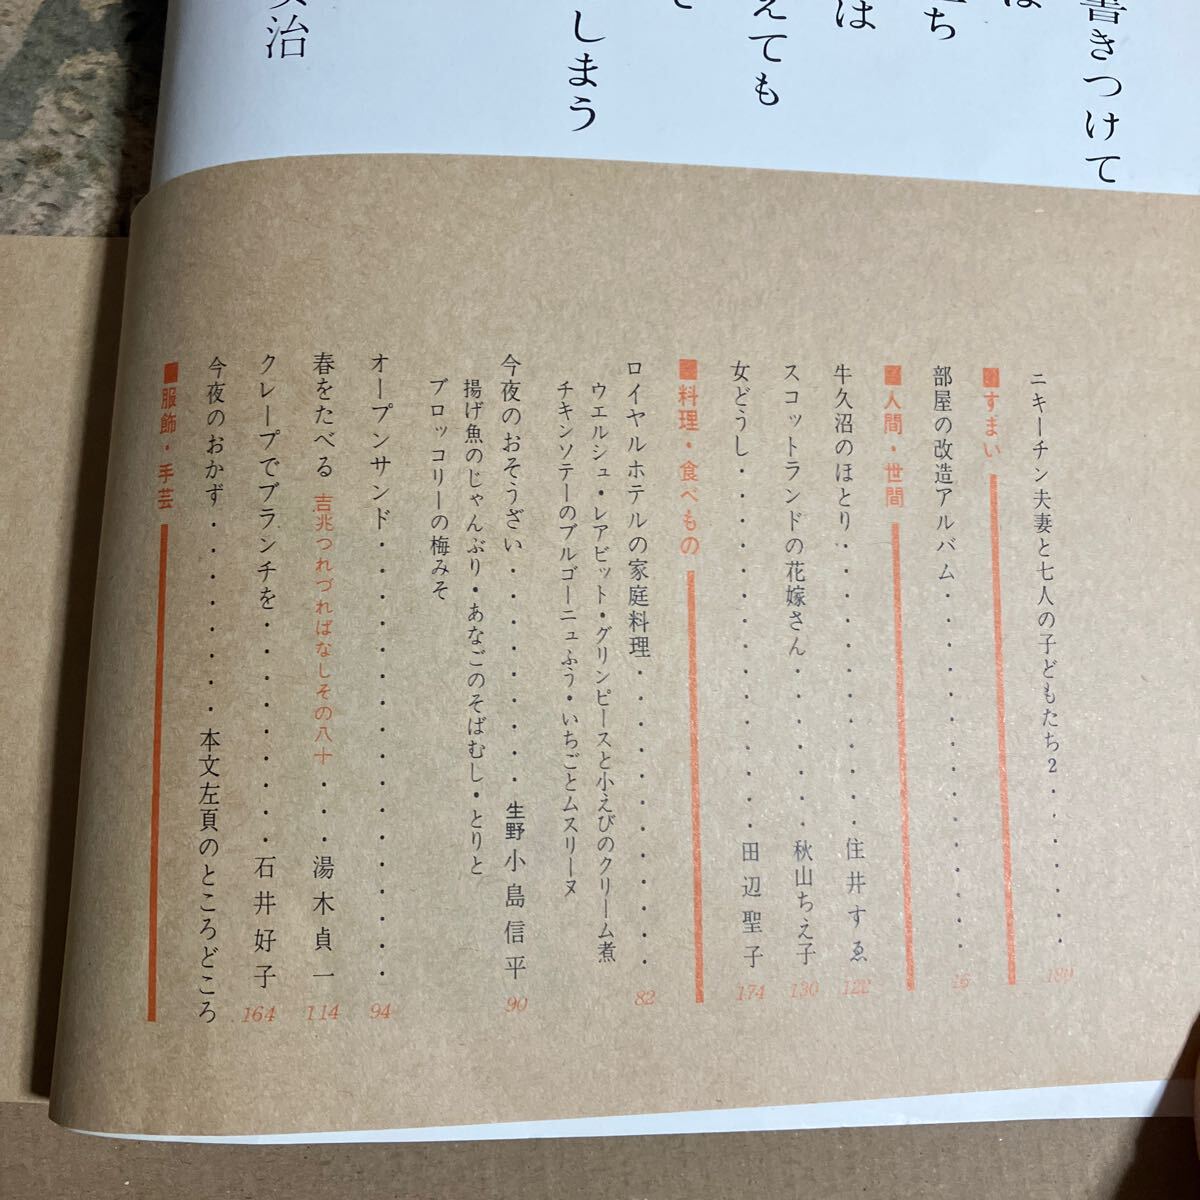 書きつけて
は
ち
は
えても
しまう
治
ニキーチン夫妻と七人の子どもたち2・・・・・・・・189
■すまい
部屋の改造アルバム・・・・・・・・・・・・15
■人間・世間
牛久沼のほとり・・・・・・・・・住井すゑ 122
スコットランドの花嫁さん・・・・・秋山ちえ子 130
女どうし・・・・・・・・・・・・田辺聖子 174
■料理・食べもの
ロイヤルホテルの家庭料理・・・・・・・・・・82
ウエルシュ・レアビット・グリンピースと小えびのクリーム煮
チキンソテーのブルゴーニュふう・いちごとムスリーヌ
今夜のおそうざい・・・・・・・・生野 小島信平 90
揚げ魚のじゃんぶり・あなごのそばむし・とりと
ブロッコリーの梅みそ
オープンサンド・・・・・・・・・・・・・・・94
春をたべる 吉兆つれづればなしその八十・・・湯木貞一 114
クレープでブランチを・・・・・・・石井好子 164
今夜のおかず・・・・・・・・本文左頁のところどころ
■服飾・手芸